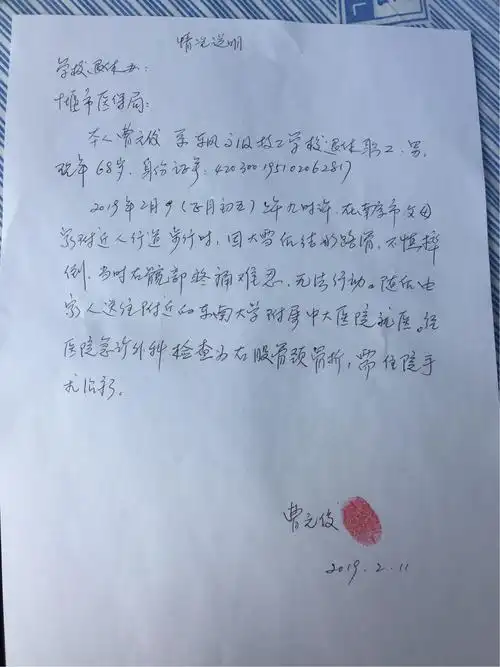 情况说明
学校退休办：
十堰市医保局：
本人曹元俊 系东风高级技工学校退休职工.男.
现年68岁.身份证号：420300195102062817
2019年2月9（正月初五）上午九时许.在南京市父母
家附近人行道步行时，因大雪低结的路滑，不慎摔
倒.当时右髋部疼痛难忍.无法行动。随后由
家人送往附近的东南大学附属中大医院就医。经
医院急诊外科检查为右股骨颈骨折，需住院手
术治疗。
曹元俊
2019.2.11